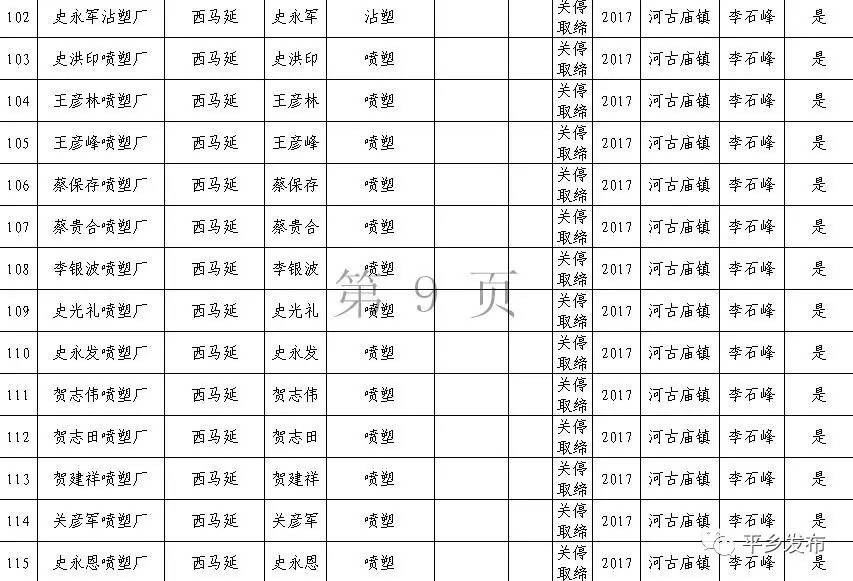 102 史永军沾塑厂 西马延 史永军 沾塑 关停取缔 2017 河古庙镇 李石峰 是
103 史洪印喷塑厂 西马延 史洪印 喷塑 关停取缔 2017 河古庙镇 李石峰 是
104 王彦林喷塑厂 西马延 王彦林 喷塑 关停取缔 2017 河古庙镇 李石峰 是
105 王彦峰喷塑厂 西马延 王彦峰 喷塑 关停取缔 2017 河古庙镇 李石峰 是
106 蔡保存喷塑厂 西马延 蔡保存 喷塑 关停取缔 2017 河古庙镇 李石峰 是
107 蔡贵合喷塑厂 西马延 蔡贵合 喷塑 关停取缔 2017 河古庙镇 李石峰 是
108 李银波喷塑厂 西马延 李银波 喷塑 关停取缔 2017 河古庙镇 李石峰 是
第 9 页
109 史光礼喷塑厂 西马延 史光礼 喷塑 关停取缔 2017 河古庙镇 李石峰 是
110 史永发喷塑厂 西马延 史永发 喷塑 关停取缔 2017 河古庙镇 李石峰 是
111 贺志伟喷塑厂 西马延 贺志伟 喷塑 关停取缔 2017 河古庙镇 李石峰 是
112 贺志田喷塑厂 西马延 贺志田 喷塑 关停取缔 2017 河古庙镇 李石峰 是
113 贺建祥喷塑厂 西马延 贺建祥 喷塑 关停取缔 2017 河古庙镇 李石峰 是
114 关彦军喷塑厂 西马延 关彦军 喷塑 关停取缔 2017 河古庙镇 李石峰 是
平乡发布
115 史永恩喷塑厂 西马延 史永恩 喷塑 关停取缔 2017 河古庙镇 李石峰 是